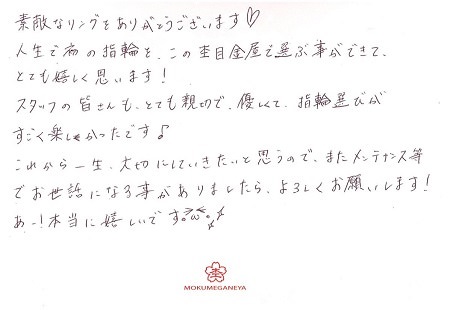 素敵なリングをありがとうございます♡
人生で初の指輪を、この杢目金屋で選ぶ事ができて、
とても嬉しく思います！
スタッフの皆さんも、とても親切で、優しくて、指輪選びが
すごく楽しかったです♪
これから一生、大切にしていきたいと思うので、またメンテナンス等
でお世話になる事がありましたら、よろしくお願いします！
あー！本当に嬉しいです。
MOKUMEGANEYA